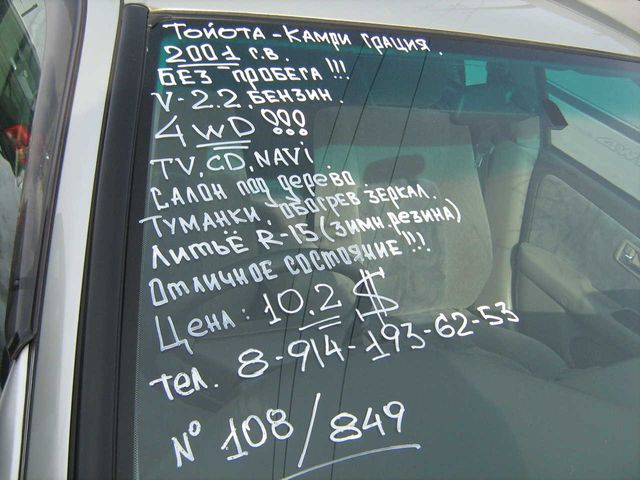 Тойота - Камри грация.
2001 г.в.
БЕЗ пробега !!!
V-2.2. БЕНЗИН.
4 WD !!!
TV, CD, NAVI
Салон под дерево
Туманки. обогрев зеркал.
Литьё R-15 (зимн. резина)
Отличное состояние !!!
Цена: 10.2 $
тел. 8-914-193-62-53
№ 108/849